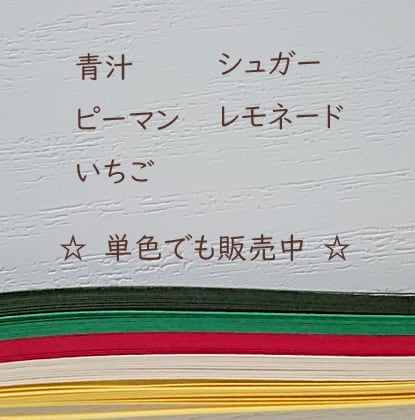 青汁 シュガー
ピーマン レモネード
いちご
☆ 単色でも販売中 ☆